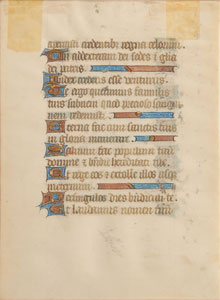 aperuisti credentibus regna celorum.
Tu ad dexteram dei sedes i glia
dei patris.
Iudex crederis esse venturus.
Te ergo quesumus famulis
tuis subueni quos precioso sangui
nem redemisti.
Eterna fac cum sanctis tuis
in gloria
Saluum fac populum tuum
domine et bndic hereditati tue.
Et rege eos et extolle illos usqz
Per singulos dies bndicim te
Et laudamus nomen tuu